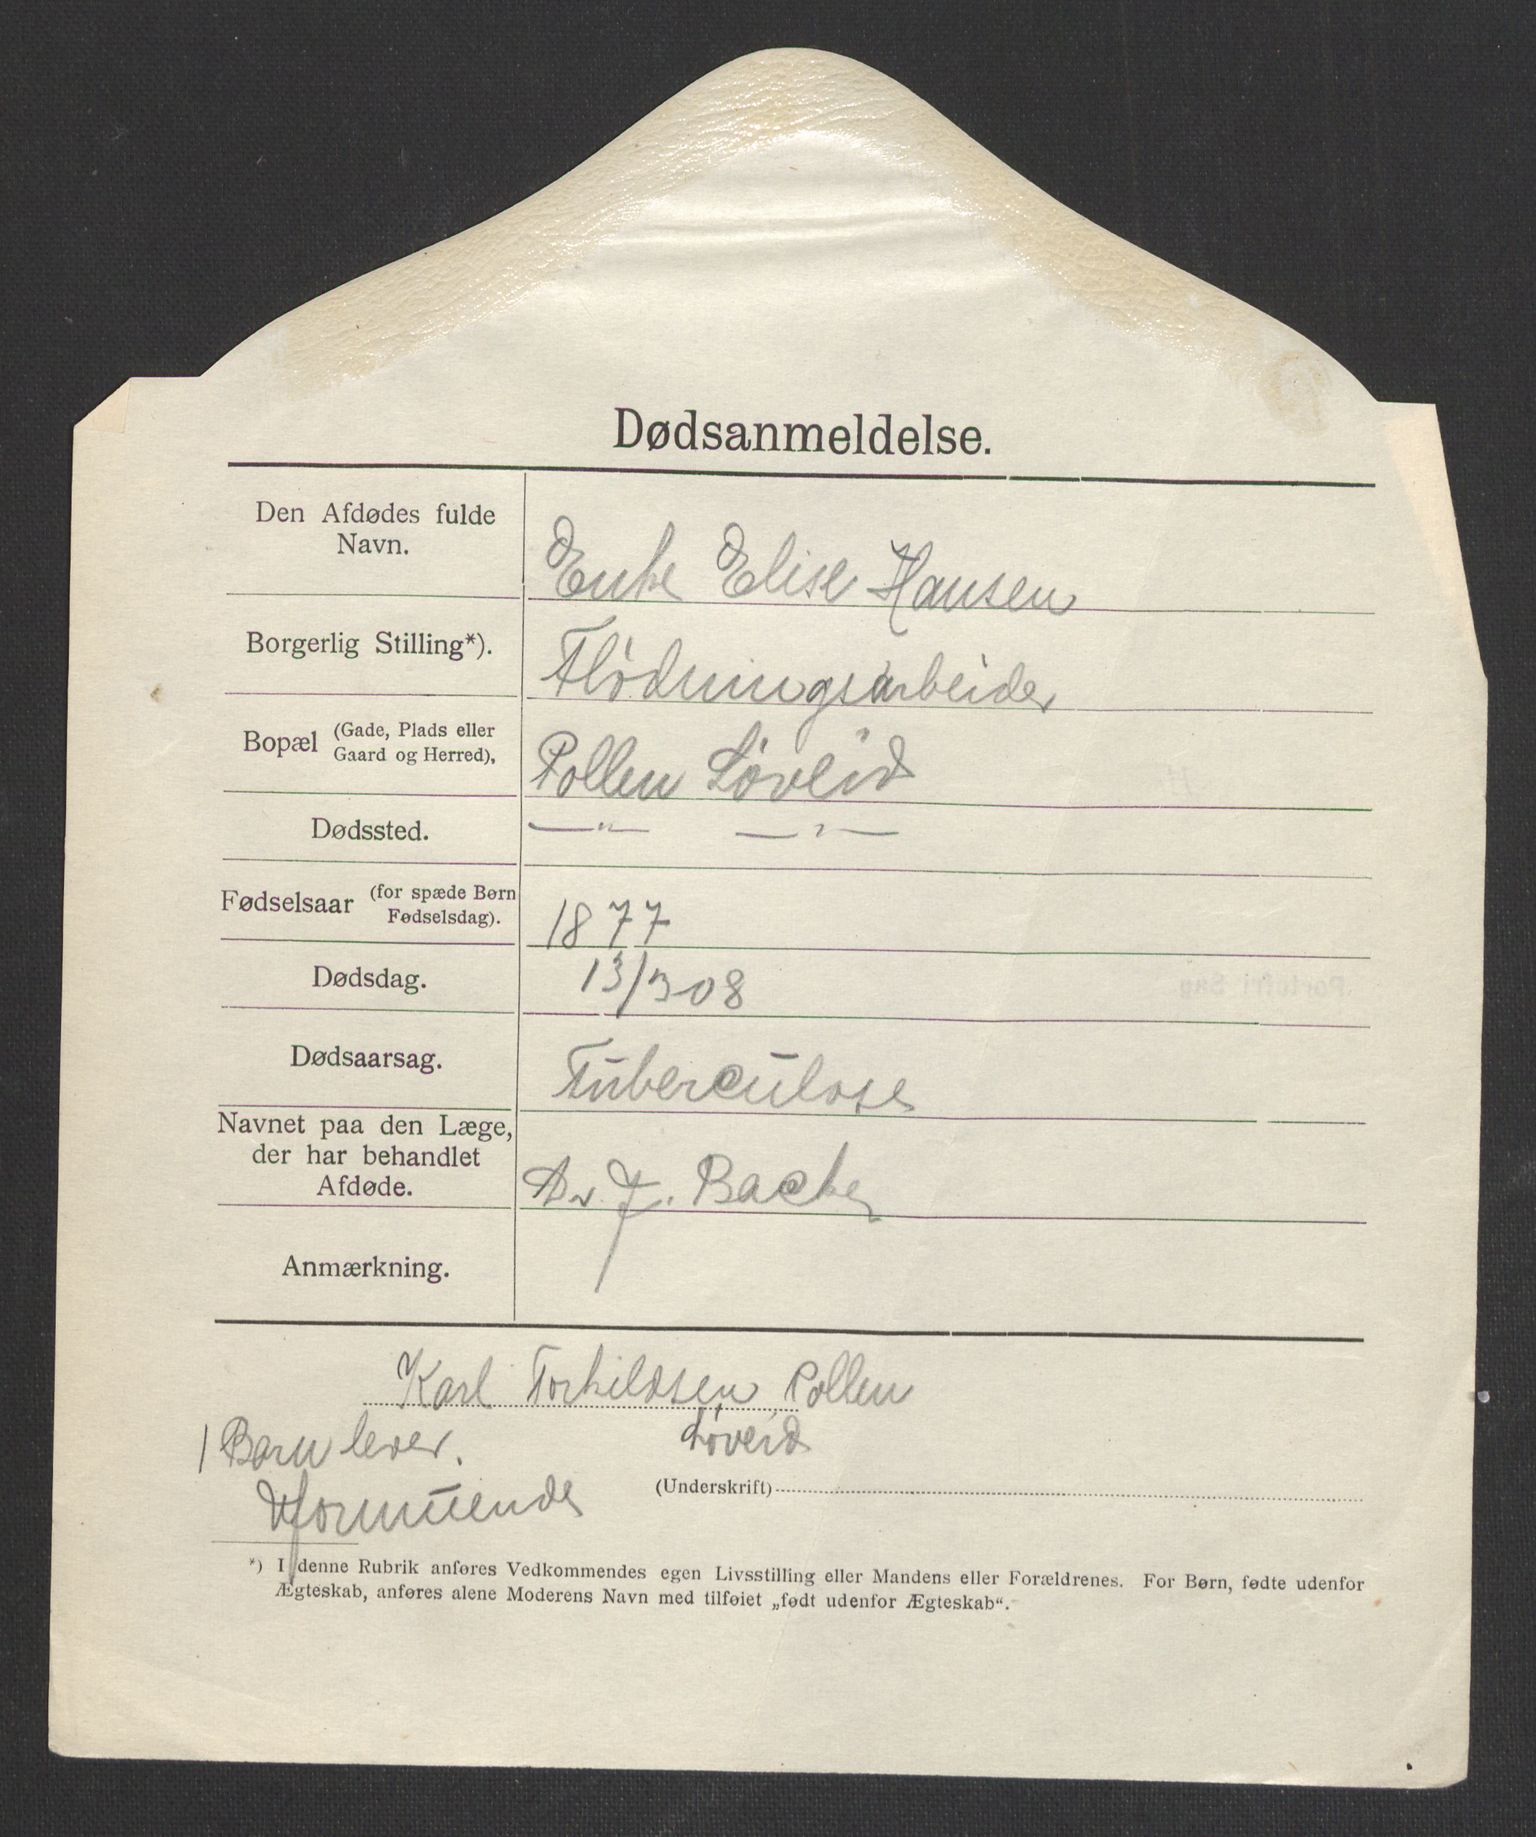 Dødsanmeldelse.
Den Afdødes fulde
Navn.
Enke Elise Hansen
Borgerlig Stilling*).
Flödningsarbeider
Bopæl (Gade, Plads eller
Gaard og Herred),
Pollen Løveid
Dødssted.
—"— —"—
Fødselsaar (for spæde Børn
Fødselsdag).
1877
Dødsdag.
13/3 08
Dødsaarsag.
Tuberculose
Navnet paa den Læge,
der har behandlet
Afdøde.
Dr. J. Backer
Anmærkning.
Karl Torkildsen Pollen
Løveid
1 Barn lever.
Uformuende
(Underskrift)
*) I denne Rubrik anføres Vedkommendes egen Livsstilling eller Mandens eller Forældrenes. For Børn, fødte udenfor
Ægteskab, anføres alene Moderens Navn med tilføiet „født udenfor Ægteskab“.
Portofri Sag